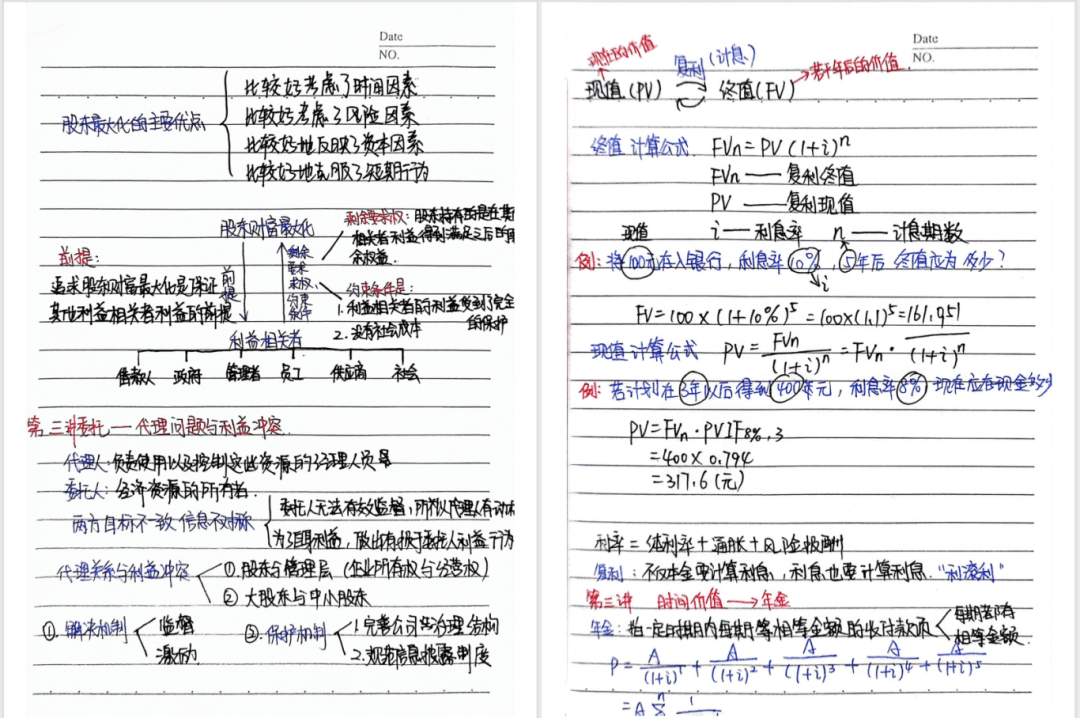 Date
NO.
股东最大化的主要优点
比较好考虑了时间因素
比较好考虑了风险因素
比较好地反映了资本因素
比较好地克服了短期行为
股东财富最大化
剩余要求权：股东持有的是在其
相关者利益得到满足之后的剩
余权益
前提：
追求股东财富最大化是保证
其他利益相关者利益的前提
前提
剩余要求权、约束条件
约束条件是：
1. 利益相关者的利益受到了完全
的保护
2. 没有社会成本
利益相关者
债权人 政府 管理者 员工 供应商 社会
第三讲委托—代理问题与利益冲突
代理人：负责使用以及控制这些资源的经理人员
委托人：经济资源的所有者.
两方目标不一致 信息不对称
委托人无法有效监督，所以代理人有动机
为了自身利益，做出有损于委托人利益行为
代理关系与利益冲突
① 股东与管理层（企业所有权与经营权）
② 大股东与中小股东
①. 解决机制
监督
激励
②. 保护机制
1. 完善公司治理结构
2. 规范信息披露制度
Date
NO.
现在的价值
复利（计息）
若干年后的价值
现值(PV) 终值(FV)
终值 计算公式 FVn=PV(1+i)^n
FVn —— 复利终值
PV —— 复利现值
现值 i — 利息率 n —— 计息期数
例：将100元存入银行，利息率10%，5年后 终值应为多少？
i
FV=100×(1+10%)^5=100×(1.1)^5=161.051
现值计算公式 PV=FVn/(1+i)^n=FVn·1/(1+i)^n
例：若计划在3年以后得到400元，利息率8%，现在应存现金多少
PV=FVn·PVIF8%,3
=400×0.794
=317.6(元)
利率=纯利率+通胀+风险报酬
复利：不仅本金要计算利息，利息也要计算利息."利滚利"
第三讲 时间价值→年金
年金：指一定时期内每期等相等金额的收付款项
每期都有
相等金额
P=A/(1+i)^1+A/(1+i)^2+A/(1+i)^3+A/(1+i)^4+A/(1+i)^5
=A